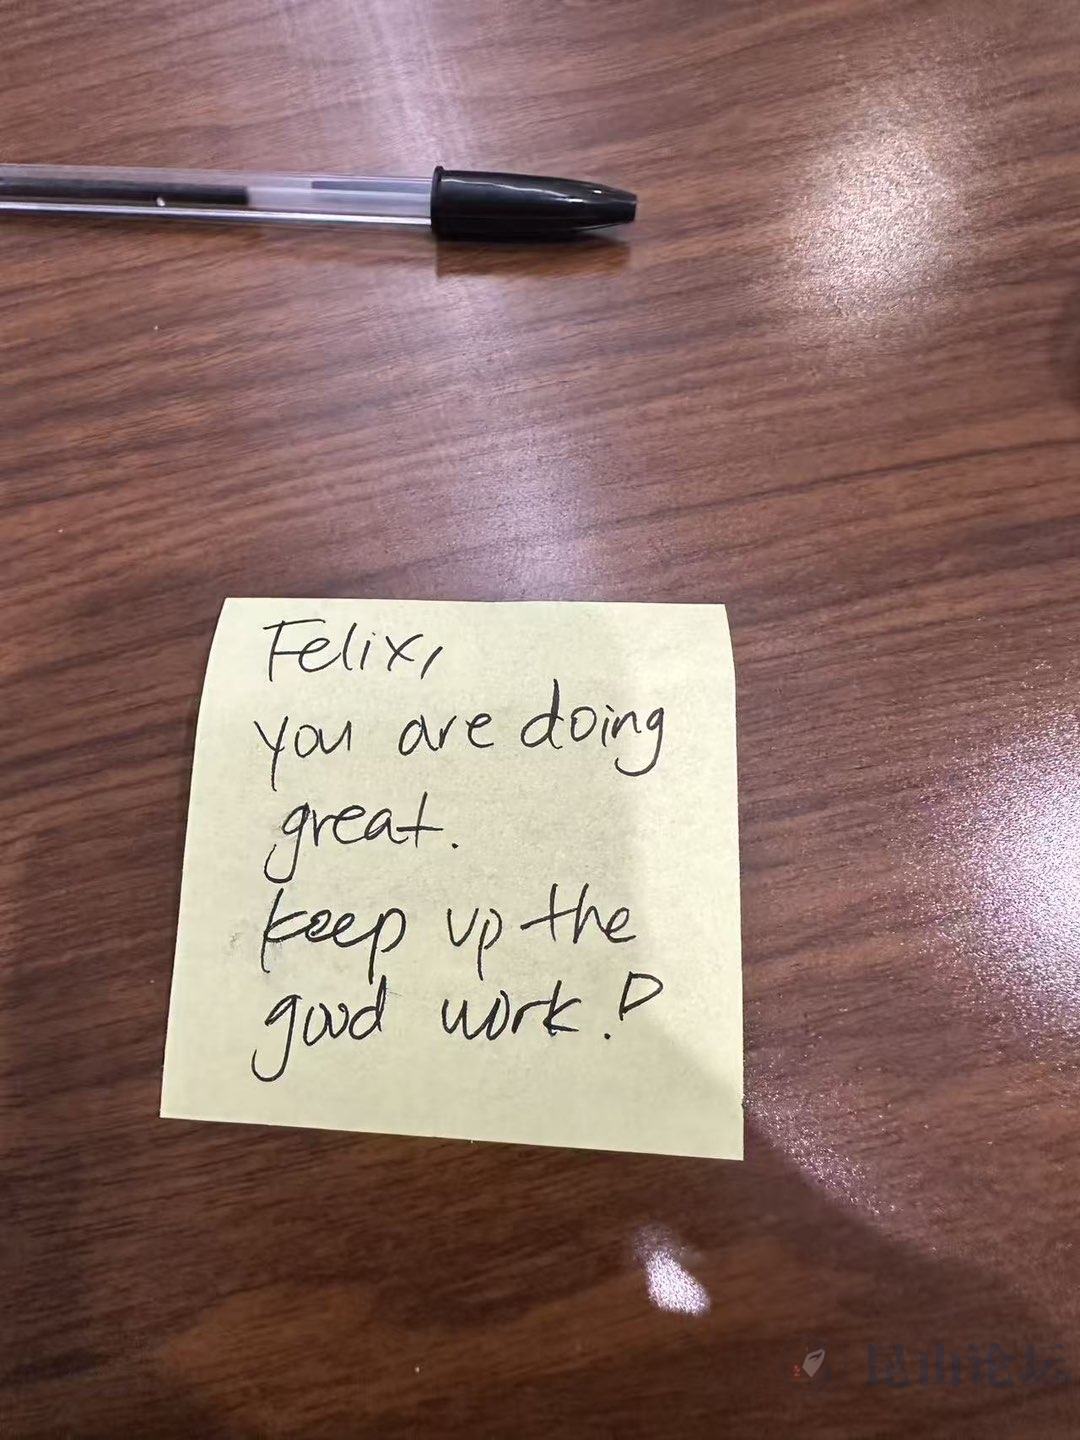 Felix,
you are doing
great.
keep up the
good work.
昆山论坛